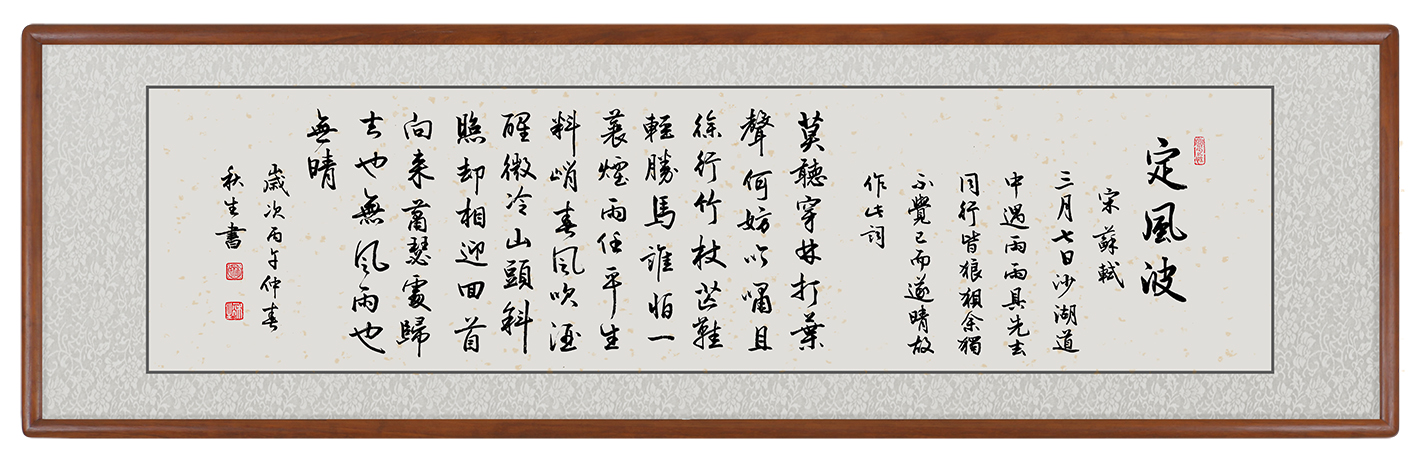 定風波
宋蘇軾
三月七日沙湖道
中遇雨雨具先去
同行皆狼狽余獨
不覺已而遂晴故
作此詞
莫聽穿林打葉
聲何妨吟嘯且
徐行竹杖芒鞋
輕勝馬誰怕一
蓑煙雨任平生
料峭春風吹酒
醒微冷山頭斜
照却相迎回首
向来蕭瑟處歸
去也無風雨也
無晴
歲次丙午仲春
秋生書